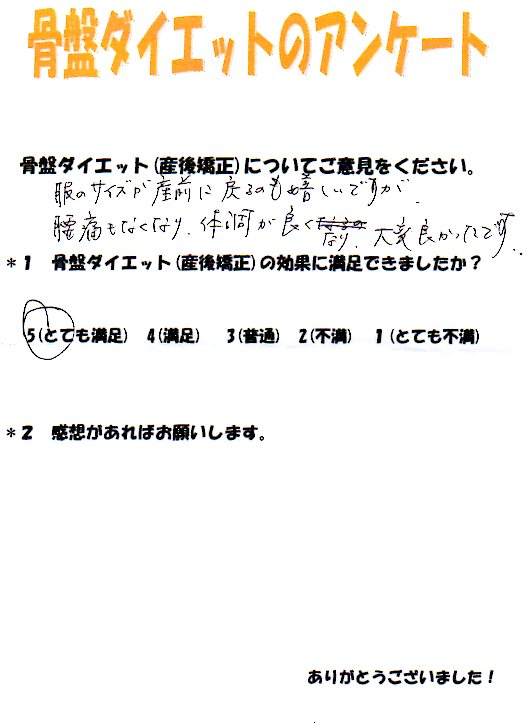 骨盤ダイエットのアンケート
骨盤ダイエット(産後矯正)についてご意見をください。
服のサイズが産前に戻るのも嬉しいですが、
腰痛もなくなり、体調が良くなり、大変良かったです。
*1 骨盤ダイエット(産後矯正)の効果に満足できましたか?
5(とても満足) 4(満足) 3(普通) 2(不満) 1(とても不満)
*2 感想があればお願いします。
ありがとうございました!